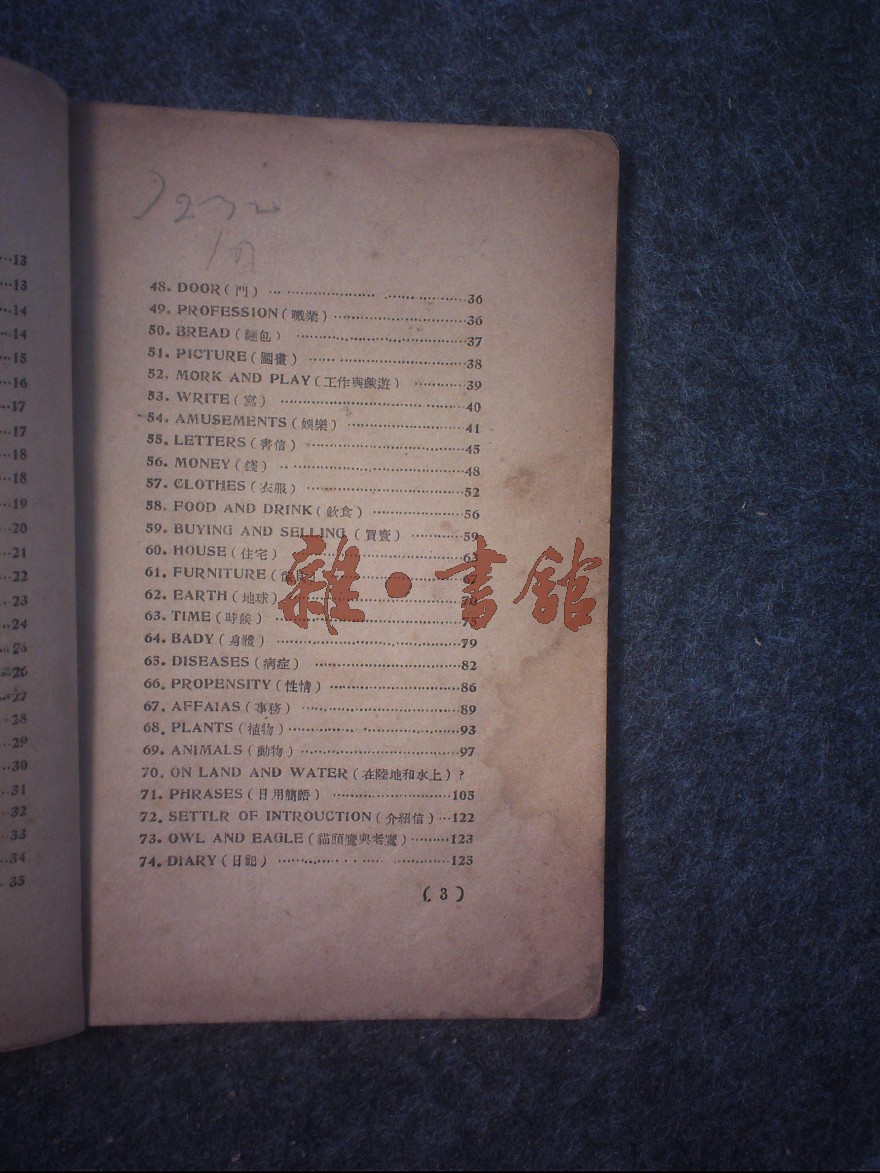 …13
…13
…14
…14
…15
…16
…17
…17
…18
…18
…19
…20
…21
…22
…23
…24
…26
…26
…27
…28
…29
…30
…31
…32
…33
…34
. 35
48. DOOR(門) … …………………… ………………36
49. PROFESSION(職業)………………………36
50. BREAD(麵包) …………………………………37
51. PICTURE(圖畫)…… ……………………………38
52. MORK AND PLAY(工作與戲遊) …………39
53. WRITE(寫) …………………………………………40
54. AMUSEMENTS(娛樂) ………………………41
55. LETTERS(書信) …………………………………45
56. MONEY(錢) …………………………………………48
57. CLOTHES(衣服) …………………………………52
58. FOOD AND DRINK(飲食) …………………56
59. BUYING AND SELLING (買賣) …………59
60. HOUSE(住宅)
61. FURNITURE(
62. EARTH(地球)
63. TIME(時候)
64. BADY(身體) …………………………………………79
65. DISEASES(病症) …………………………………82
66. PROPENSITY(性情) ……………………………86
67. AFFAIAS(事務) ……………………………………89
68. PLANTS(植物)………………………………………93
69. ANIMALS(動物)……………………………………97
70. ON LAND AND WATER(在陸地和水上)?
71. PHRASES(日用簡語) …………………………105
72. SETTLR OF INTROUCTION(介紹信) …122
73. OWL AND EAGLE(貓頭鷹與老鷹)………123
74. DIARY(日記) ……………………………………125
(3)
雜·書館